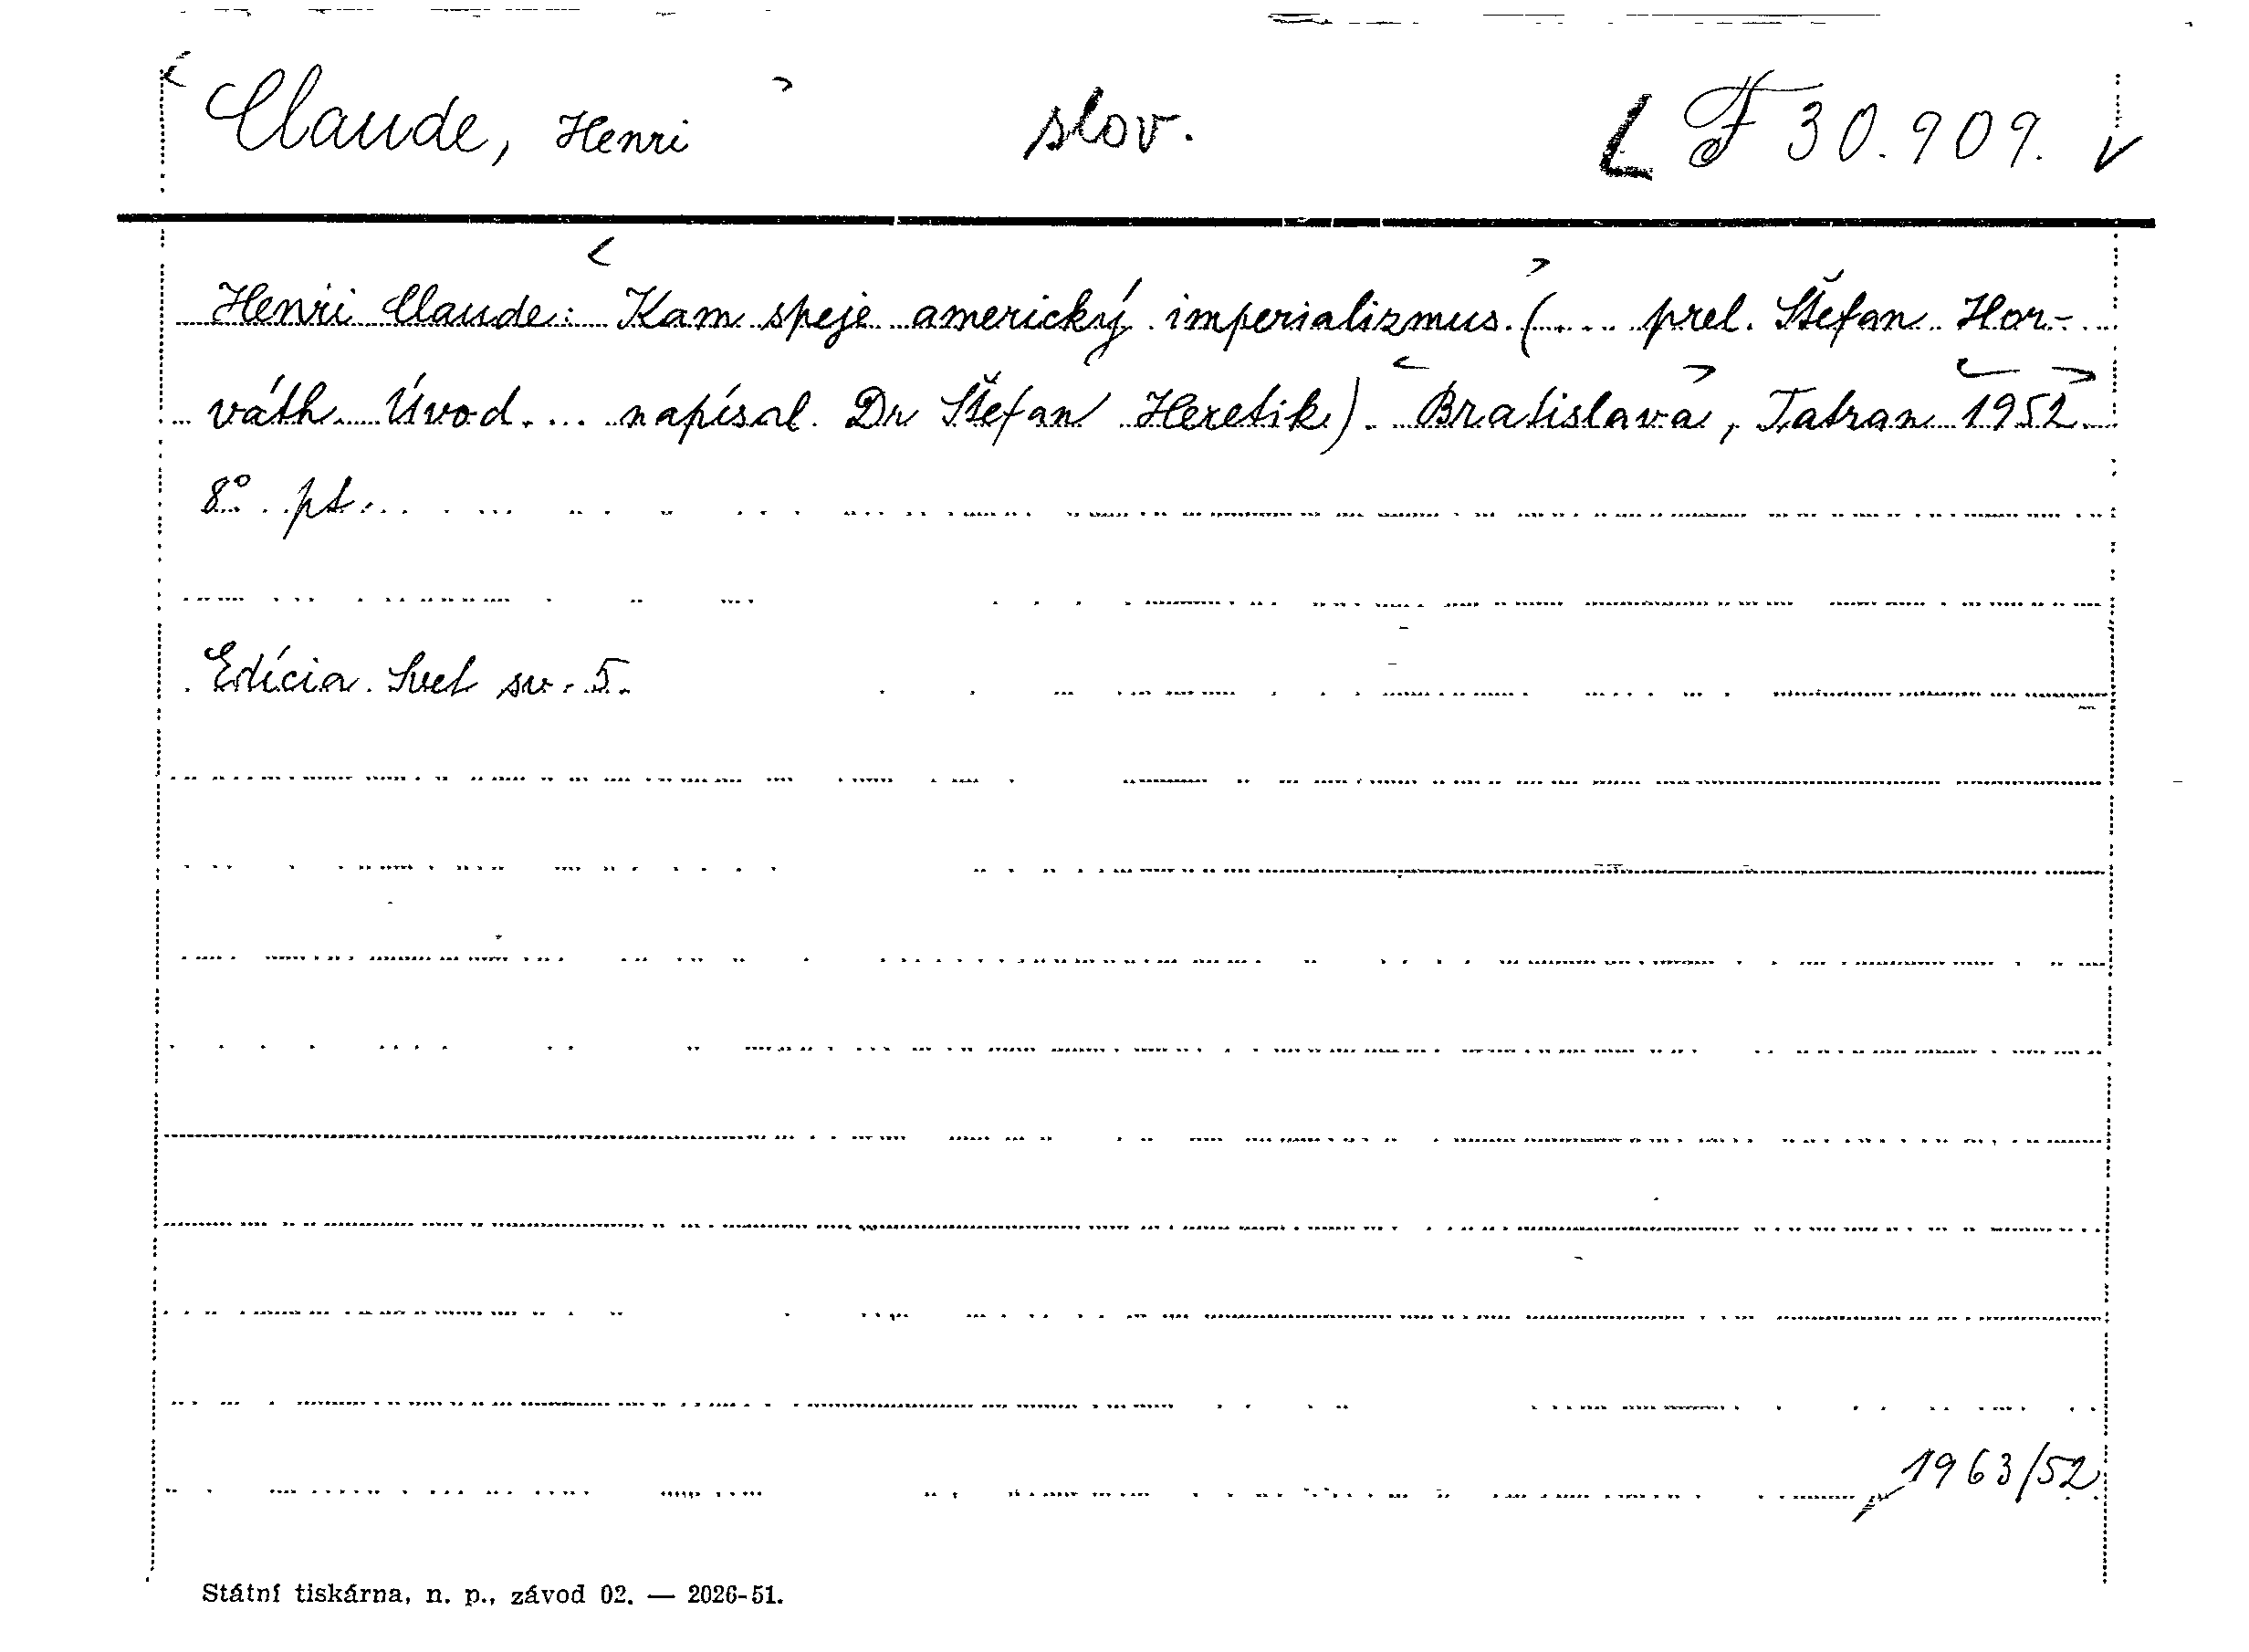 Claude, Henri slov. F 30.909.
Henri Claude: Kam speje americký imperializmus. (... prel. Štefan Hor-
váth. Úvod ... napísal Dr Štefan Heretik). Bratislava, Tatran 1952
8° pt.
Edícia Svet sv. 5.
1963/52
Státní tiskárna, n. p., závod 02. — 2026-51.